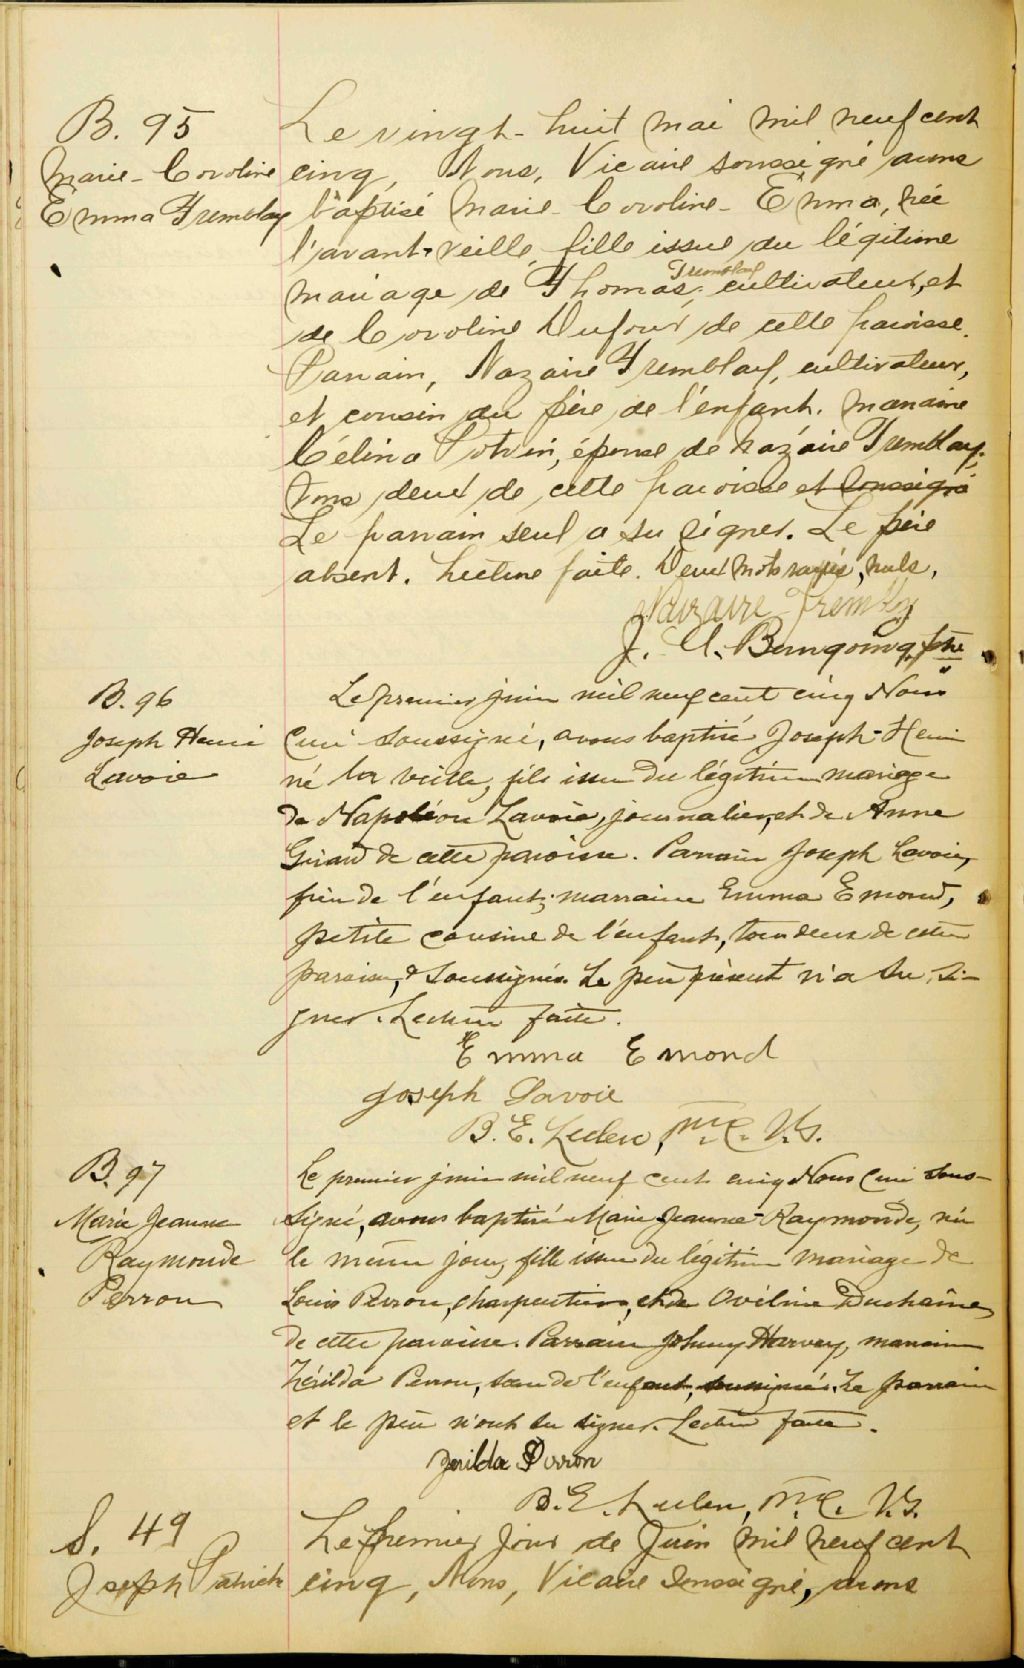 B. 95
Marie-Coroline
Emma Tremblay
Le vingt-huit mai mil neuf cent
cinq, Nous, Vicaire soussigné avons
baptisé Marie-Coroline-Emma, née
l'avant-veille, fille issue du légitime
Tremblay
mariage de Thomas, cultivateur, et
de Coroline Dufour de cette paroisse.
Parrain, Nazaire Tremblay, cultivateur,
et cousin du père de l'enfant. Marraine
Célina Potvin, épouse de Nazaire Tremblay,
Tous deux de cette paroisse et soussigné
Le parrain seul a su signer. Le père
absent. Lecture faite. Deux mots rayés, nuls.
Nazaire Trembly
J. Ptre
B. 96
Joseph Henri
Lavoie
Le premier juin mil neuf cent cinq Nous
Curé soussigné, avons baptisé Joseph-Henri
né la veille, fils issu du légitime mariage
de Napoléon Lavoie, journalier, et de Anne
Girard de cette paroisse. Parrain Joseph Lavoie,
frère de l'enfant; marraine Emma Emond,
petite cousine de l'enfant, tous deux de cette
paroisse, & soussignés. Le père présent n'a su si-
gner. Lecture faite.
Emma Emond
Joseph Lavoie
B. E. Leclerc, V.G.
B. 97
Marie Jeanne
Raymonde
Perron
Le premier juin mil neuf cent cinq Nous Curé sous-
signé, avons baptisé Marie-Jeanne-Raymonde, née
le même jour, fille issue du légitime mariage de
Louis Perron, charpentier, et de Ovéline Duchaine,
de cette paroisse. Parrain Johnny Harvey, marraine
Zérilda Perron, sœur de l'enfant, soussignée. Le parrain
et le père n'ont su signer. Lecture faite.
Zerilda Perron
B. E. Leclerc, V.G.
S. 49
Joseph Patrick
Le premier jour de Juin mil neuf cent
cinq, Nous, Vicaire soussigné, avons